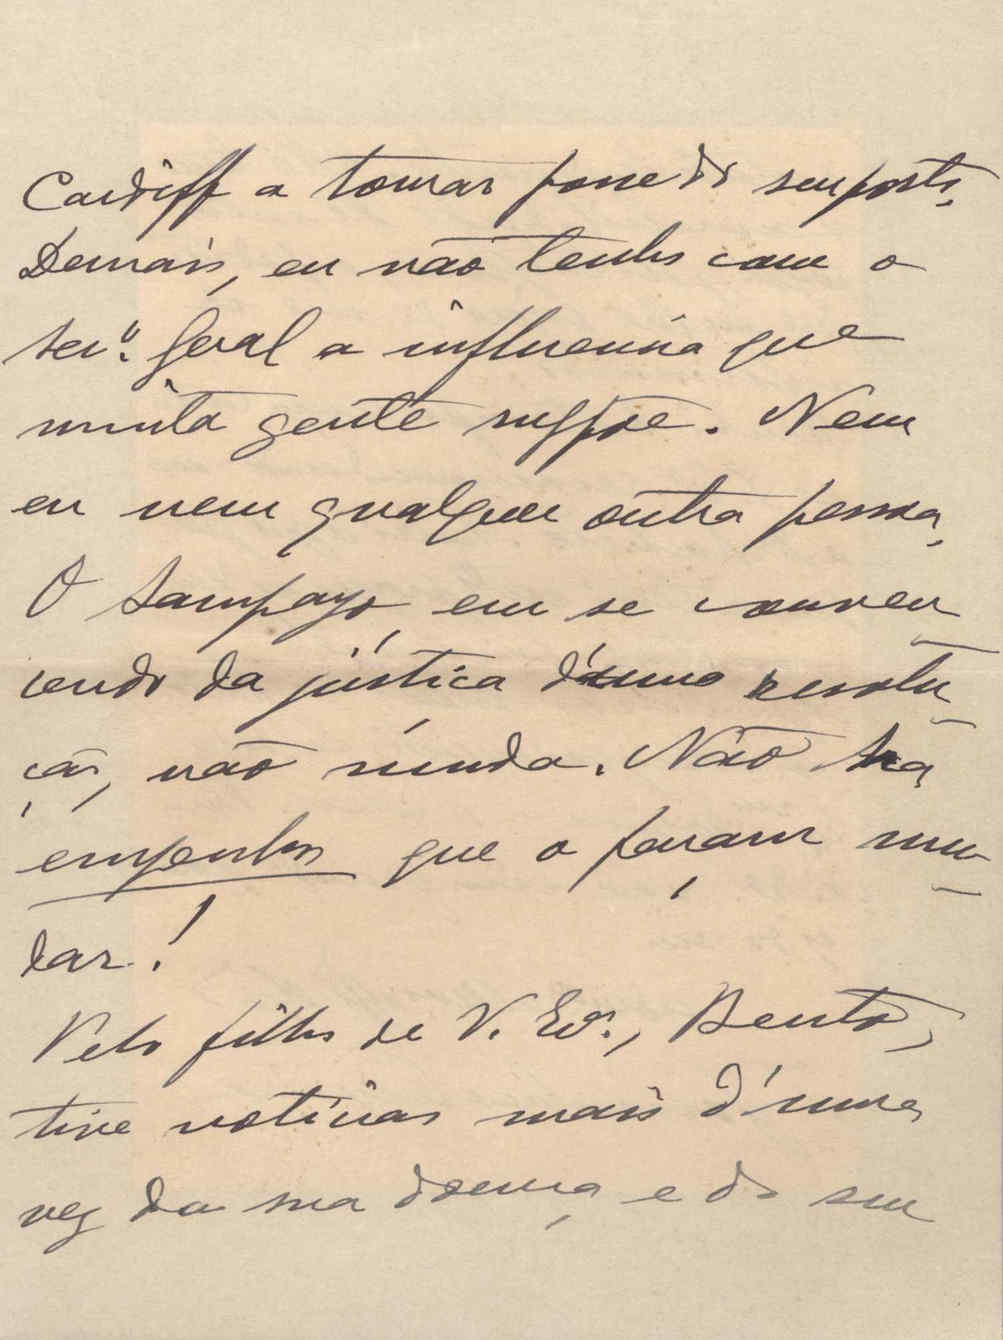 Cardiff a tomar posse do seu posto.
Demais, eu não tenho com o
Secº. Geral a influencia que
muita gente suppõe. Nem
eu nem qualquer outra pessoa.
O Sampayo, em se conven-
cendo da justiça d'uma resolu-
ção, não muda. Não ha
empenhos que o façam mu-
dar!
Pelo filho de V. Exª., Bento,
tive noticias mais d'uma
vez da sua doença e do seu